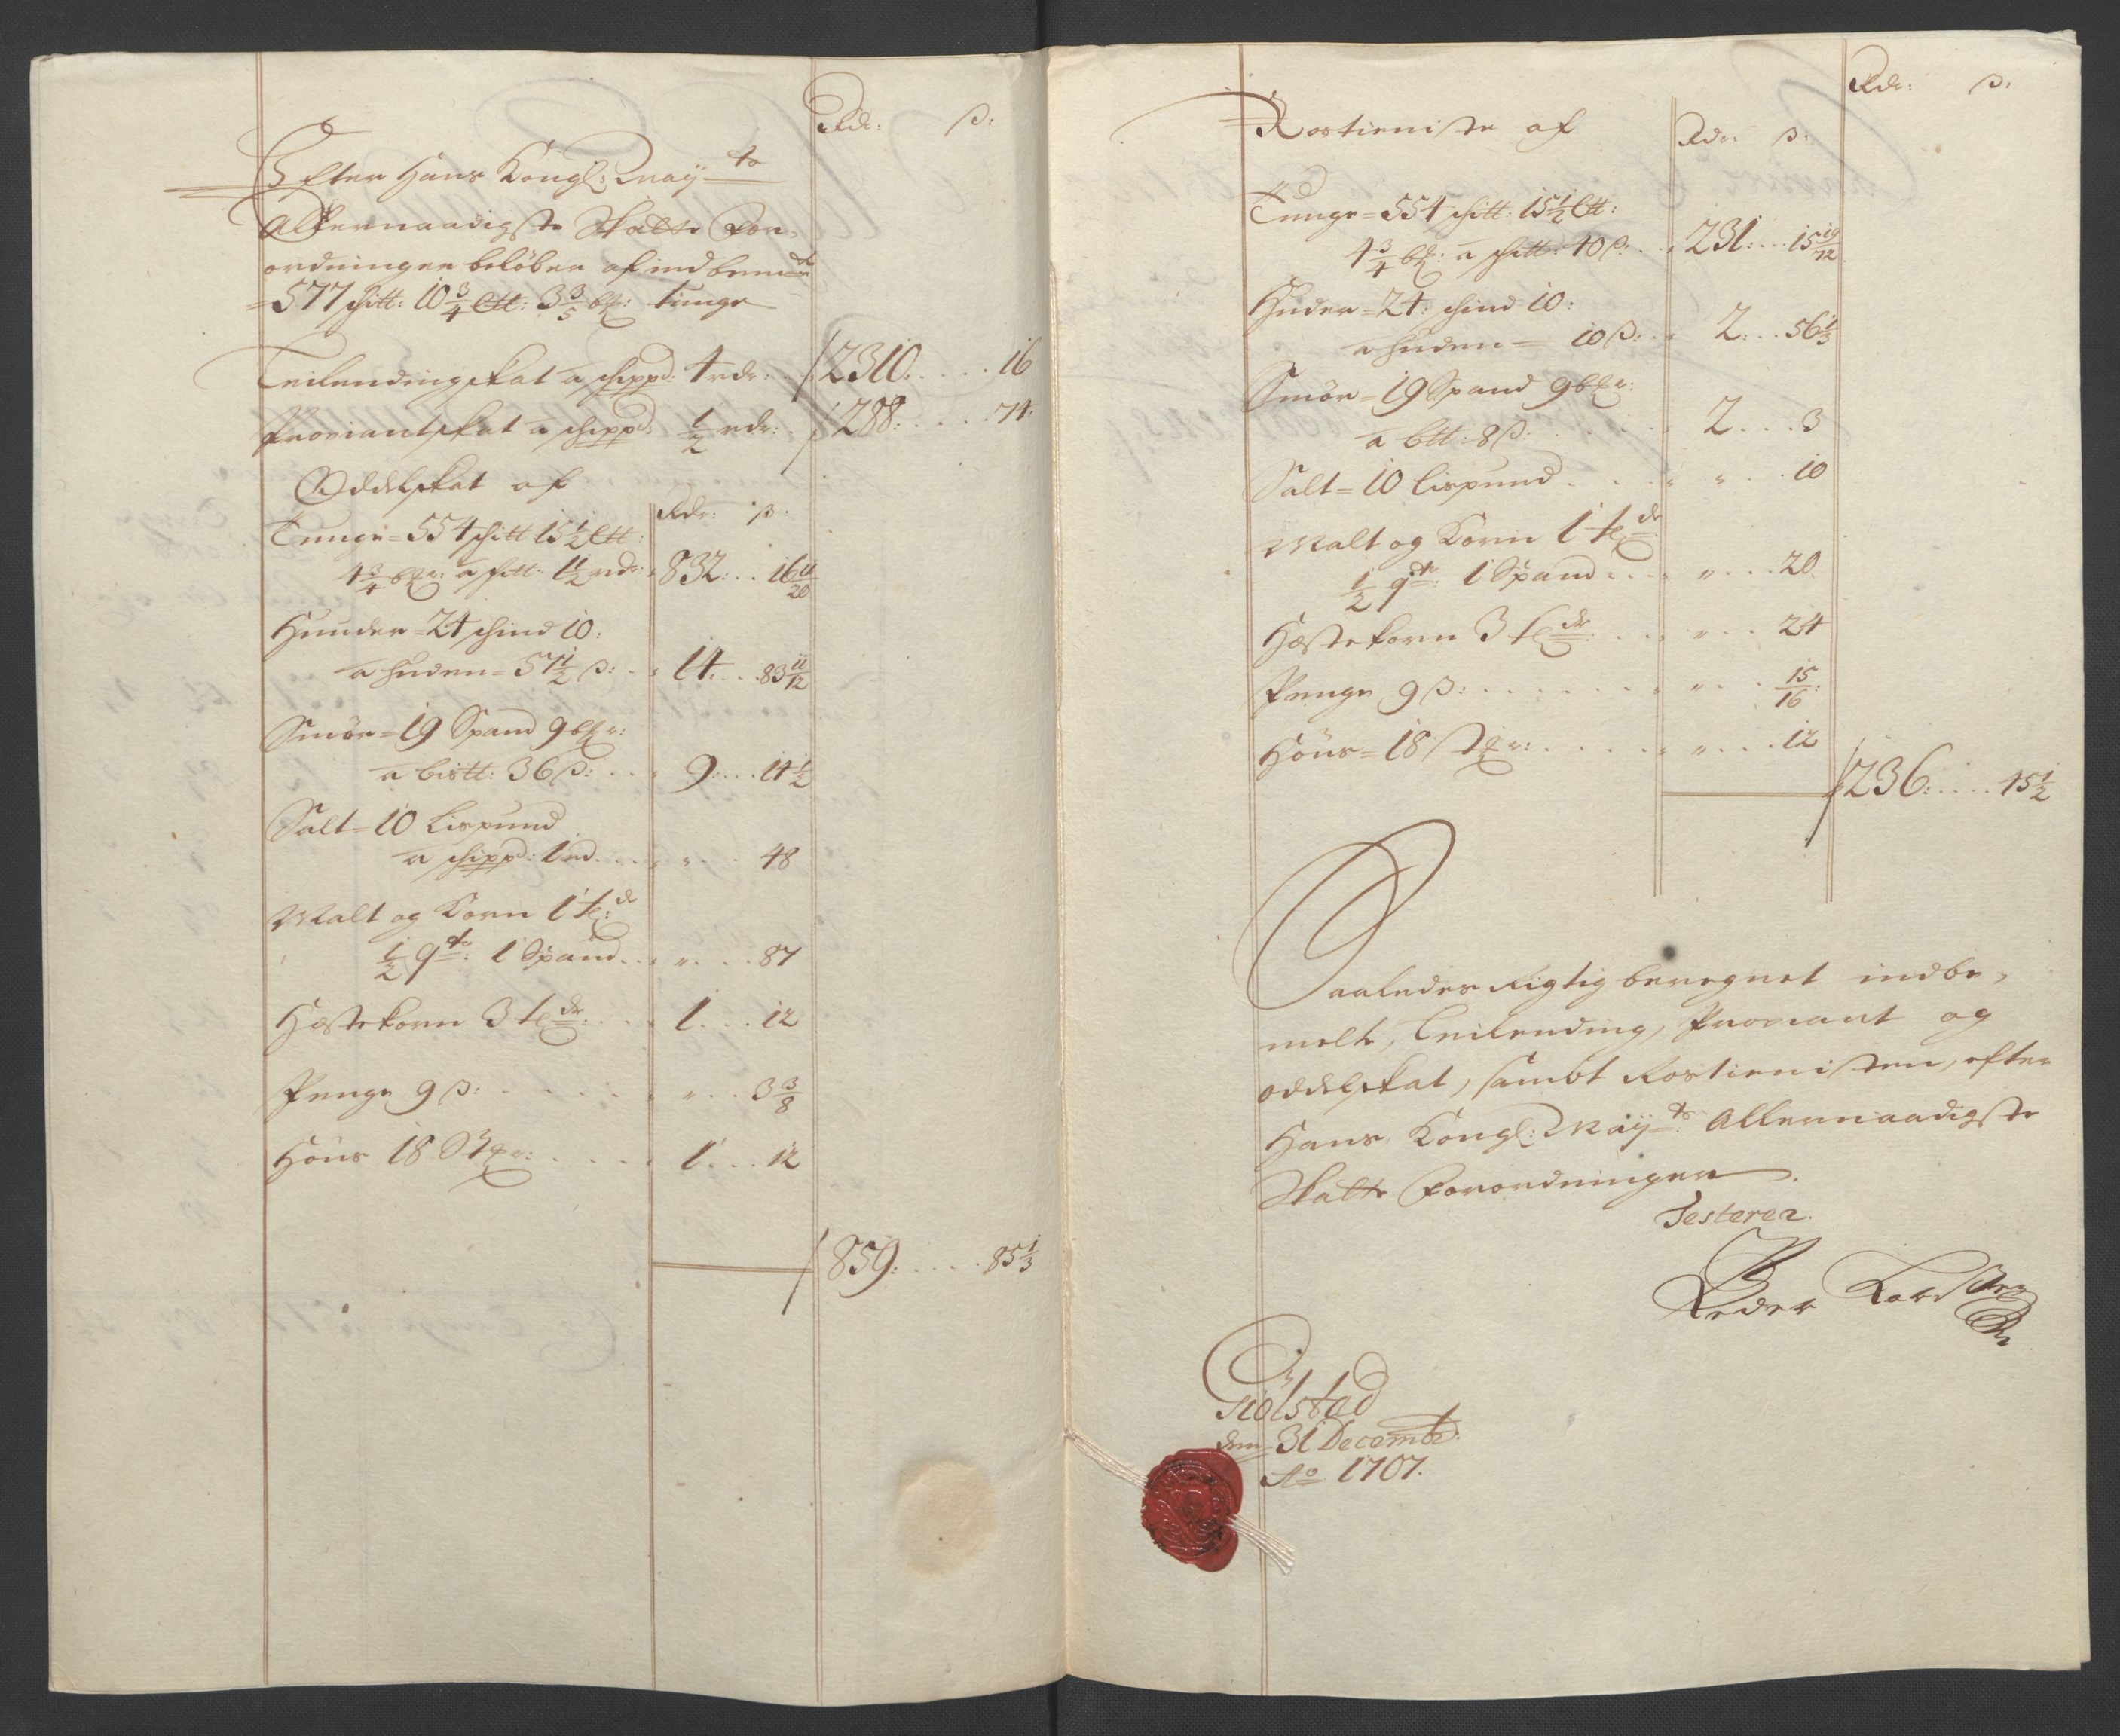 Rdr: ß:
Efter Hans Kongl: May:ts
Allernaadigste Skatte For-
ordninger beløber af indbem:te
577 schitt: 10 3/4 Ltt: 3 3/5 bf: tunge
Leilendingskat a schippd: 4 rdr: 2310: 16
Proviantskat a schippd: 1/2 rdr: 288: 74:
Oddelskat af
Rdr: ß:
Tunge = 554 schitt 15 1/2 Ltt:
4 3/4 bfr: a schitt: 1 1/2 rdr: 832: 16 11/20
Huuder = 24 schind 10:
a huden = 57 1/2 ß: 14: 83 11/12
Smör = 19 Spand 9 bfr:
a bistt: 36 ß: 9: 14 1/2
Salt = 10 Lispund
a schippd: 1 rd " 48
Malt og Korn 1 te:de
1/2 q:te: 1 Spand " 87
Hestekorn 3 te:dr: 1 12
Penge 9 ß: " 3 3/8
Höns 18 Stkr: 1 12
859: 85 1/3
Rdr: ß:
Rostieniste af
Rdr: ß:
Tunge = 554 schitt: 15 1/2 Ltt:
4 3/4 bf: a schitt: 40 ß: 231: 15 19/72
Huder = 24: schind 10:
a huden = 10 ß: 2: 56 1/3
Smör = 19 Spand 9 bfr:
a btt: 8 ß: 2 3
Salt = 10 Lispund " 10
Malt og Korn 1 te:de
1/2 q:te: 1 Spand " 20
Hestekorn 3 te:dr: " 24
Penge 9 ß: " 15/16:
Höns = 18 Stkr: " 12
236: 45 1/2
Saaledes Rigtig beregnet indbe-
melte, Leilending, Proviant og
oddelskat, sambt Rostienisten, efter
Hans Kongl: May:ts Allernaadigste
Skatte Forordninger.
Testerer
Peder
Giölstad
den 31 Decembr:
Ao 1707.